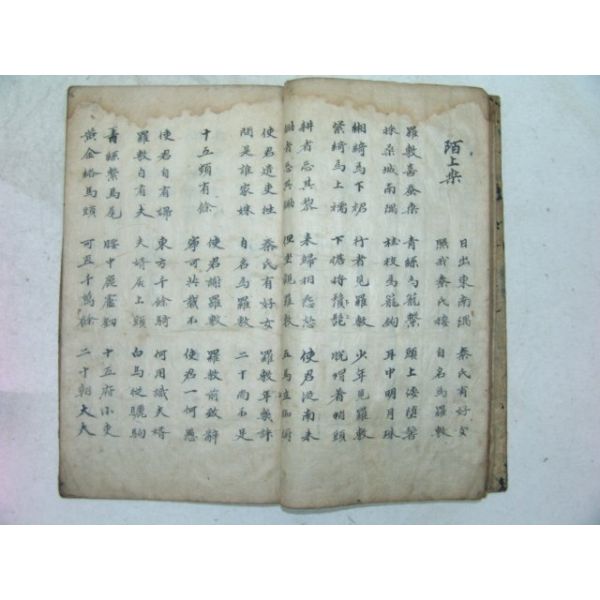 陌上桒
日出東南隅 秦氏有好女
照我秦氏樓 自名爲羅敷
羅敷喜蚕桒 青絲爲籠繫 頭上倭墮髻
採桒城南隅 桂枝爲籠鉤 耳中明月珠
緗綺爲下裙 行者見羅敷 少年見羅敷
紫綺爲上襦 下擔捋髭 脫帽着帩頭
耕者忘其犂 來歸相怨怒 使君從南來
鋤者忘其鋤 但坐觀羅敷 五馬立踟躕
使君遣吏往 秦氏有好女 羅敷年幾許
問是誰家姝 自名爲羅敷 二十尚不足
十五頗有餘 使君謝羅敷 羅敷前致辭
寧可共載不 使君一何愚
使君自有婦 東方千餘騎 何用識夫婿
羅敷自有夫 夫婿居上頭 白馬從驪駒
青絲繫馬尾 腰中鹿盧劍 十五府小吏
黃金絡馬頭 可直千萬餘 二十朝大夫